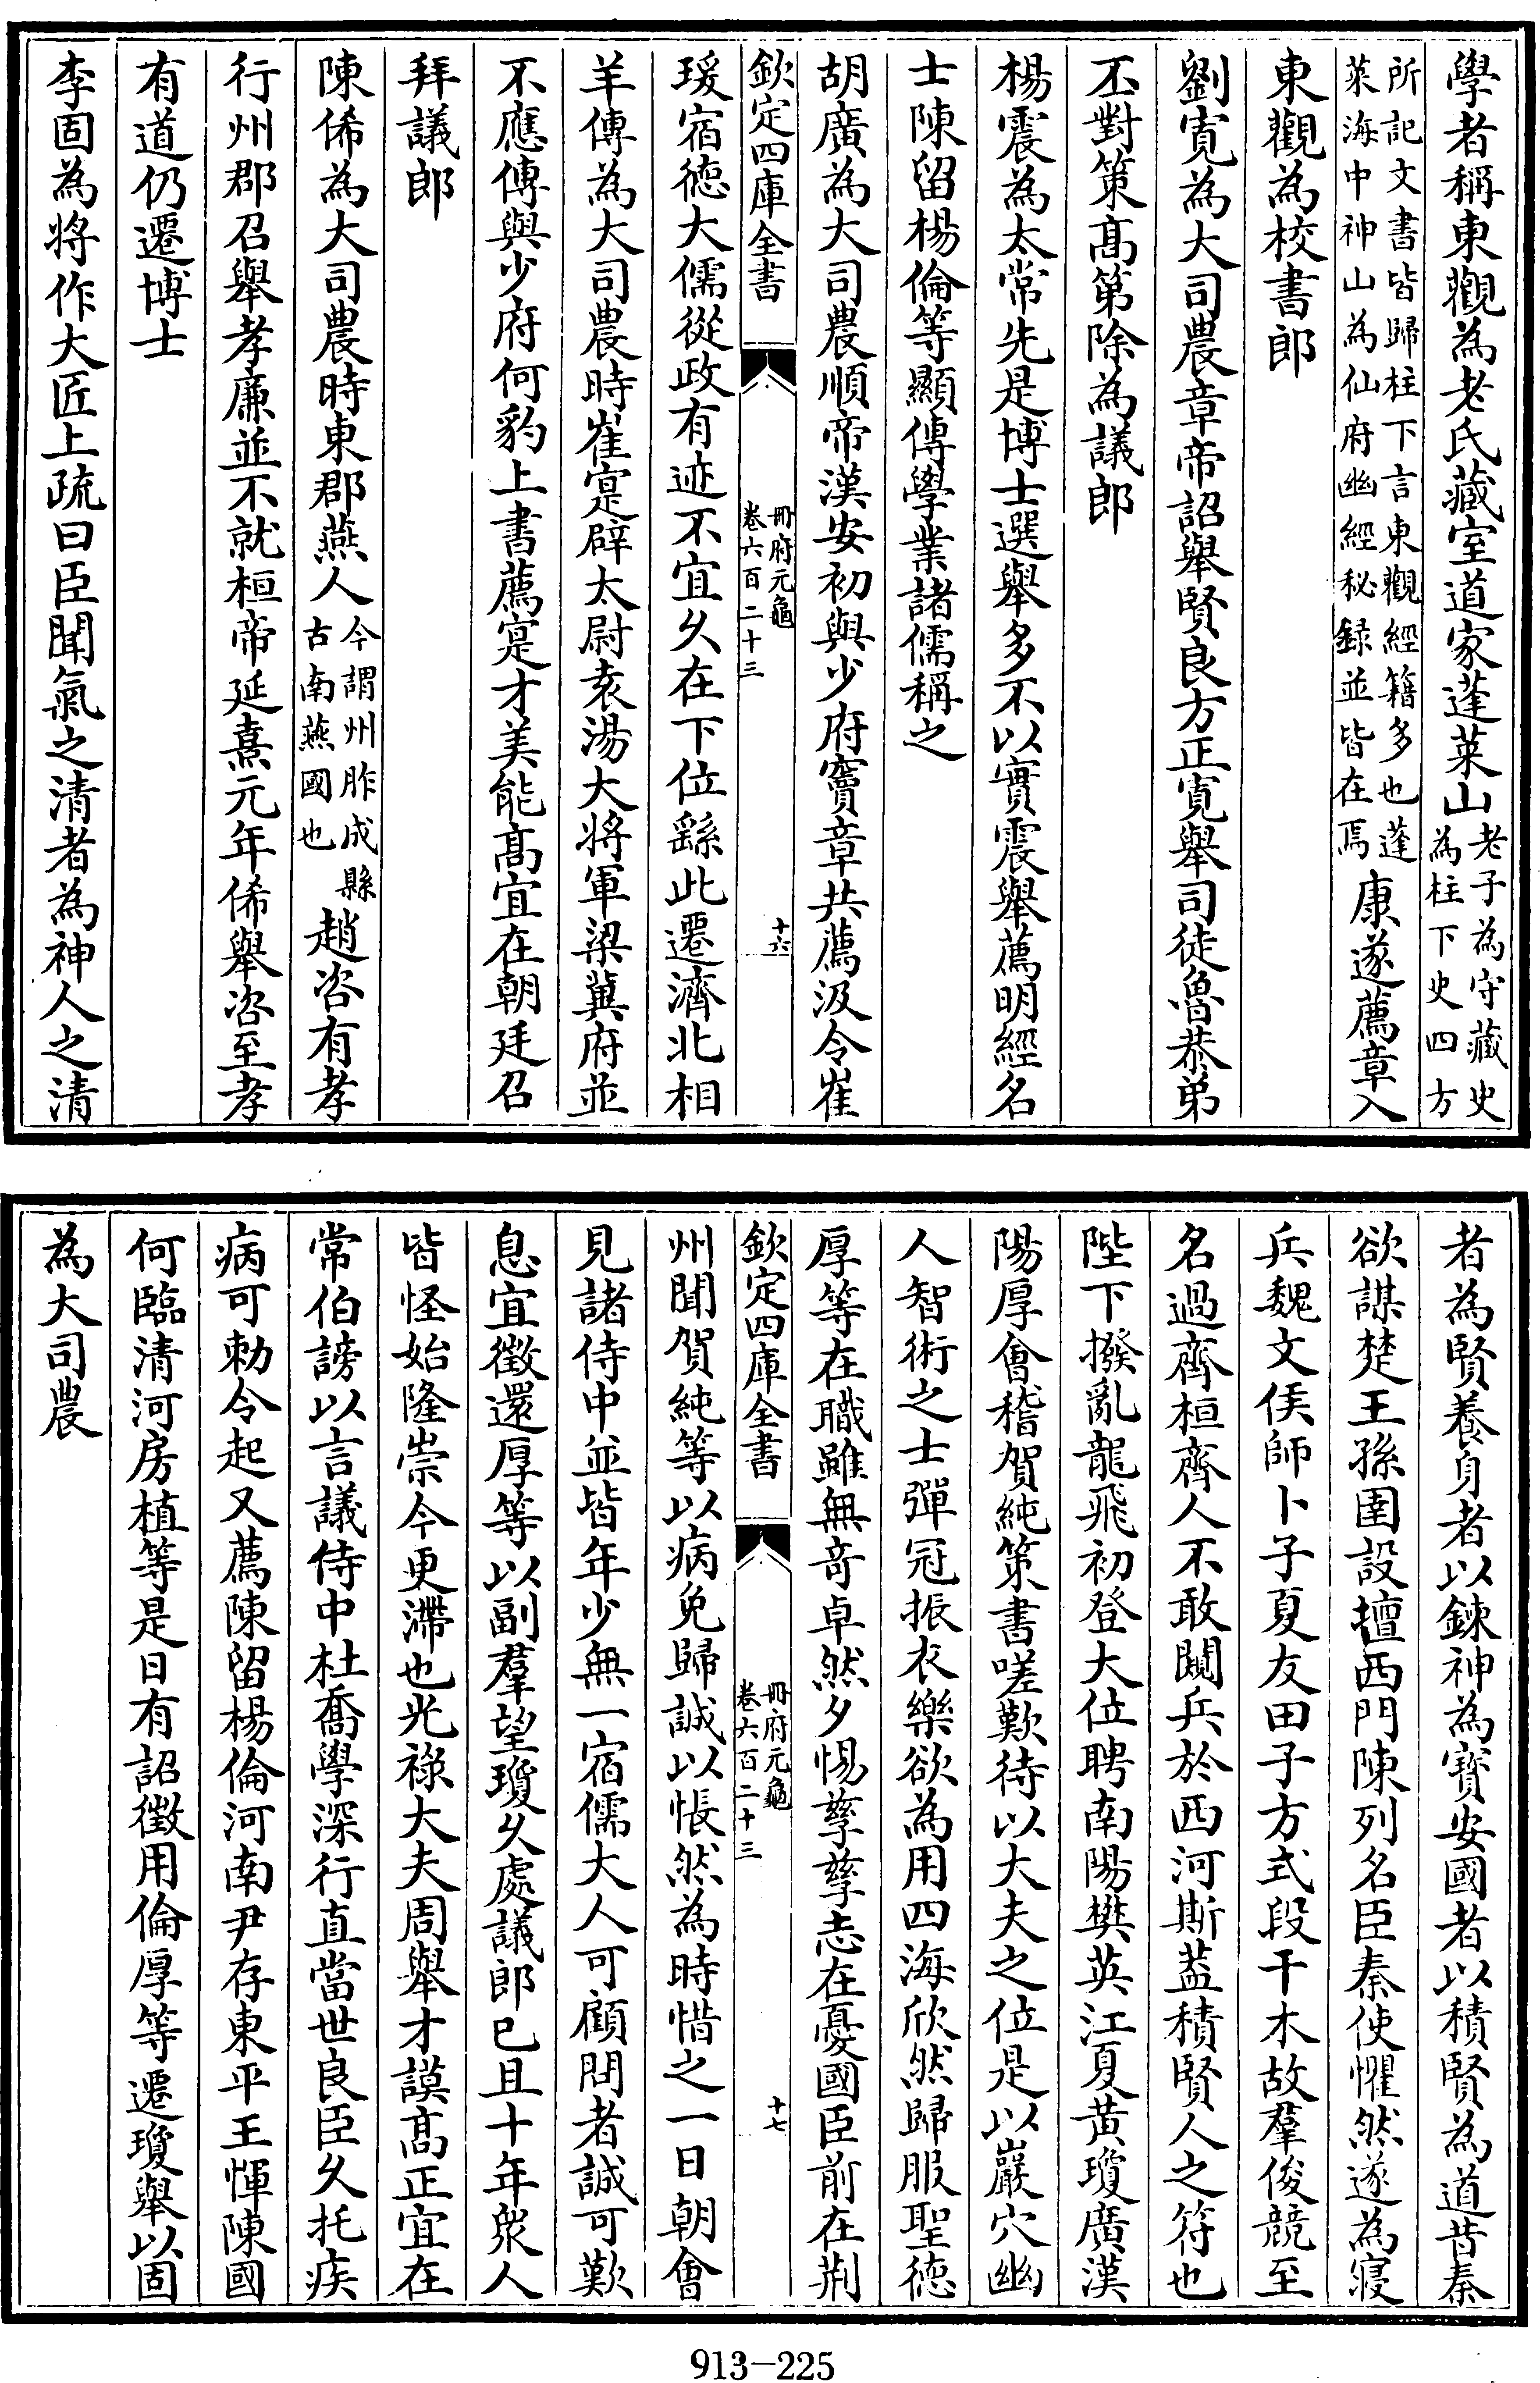 學者稱東觀為老氏藏室道家蓬萊山老子為守藏史為柱下史四方
所記文書皆歸柱下言東觀經籍多也蓬萊海中神山為仙府幽經秘録並皆在焉康遂薦章入
東觀為校書郎
劉寛為大司農章帝詔舉賢良方正寛舉司徒魯恭弟
丕對策髙第除為議郎
楊震為太常先是博士選舉多不以實震舉薦明經名
士陳留楊倫等顯傳學業諸儒稱之
胡廣為大司農順帝漢安初與少府竇章共薦汲令崔
欽定四庫全書
冊府元龜
卷六百二十三
十六
瑗宿徳大儒從政有迹不宜乆在下位繇此遷濟北相
羊傅為大司農時崔寔辟太尉袁湯大將軍梁冀府並
不應傅與少府何豹上書薦寔才美能髙宜在朝廷召
拜議郎
陳俙為大司農時東郡燕人今謂州胙成縣古南燕國也趙咨有孝
行州郡召舉孝廉並不就桓帝延熹元年俙舉咨至孝
有道仍遷博士
李固為將作大匠上疏曰臣聞氣之清者為神人之清
者為賢養身者以鍊神為寳安國者以積賢為道昔秦
欲謀楚王孫圉設壇西門陳列名臣秦使懼然遂為寢
兵魏文侯師卜子夏友田子方式段干木故羣俊競至
名過齊桓齊人不敢闚兵於西河斯葢積賢人之符也
陛下撥亂龍飛初登大位聘南陽樊英江夏黃瓊廣漢
陽厚會稽賀純策書嗟歎待以大夫之位是以巖穴幽
人智術之士彈冠振衣樂欲為用四海欣然歸服聖徳
厚等在職雖無竒卓然夕惕孳孳志在憂國臣前在荆
欽定四庫全書
冊府元龜
卷六百二十三
十七
州聞賀純等以病免歸誠以悵然為時惜之一日朝會
見諸侍中並皆年少無一宿儒大人可顧問者誠可歎
息宜徵還厚等以副羣望瓊乆處議郎已且十年衆人
皆怪始隆崇今更滯也光祿大夫周舉才謨髙正宜在
常伯謗以言議侍中杜喬學深行直當世良臣乆托疾
病可勅令起又薦陳留楊倫河南尹存東平王惲陳國
何臨清河房植等是日有詔徵用倫厚等遷瓊舉以固
為大司農
913-225